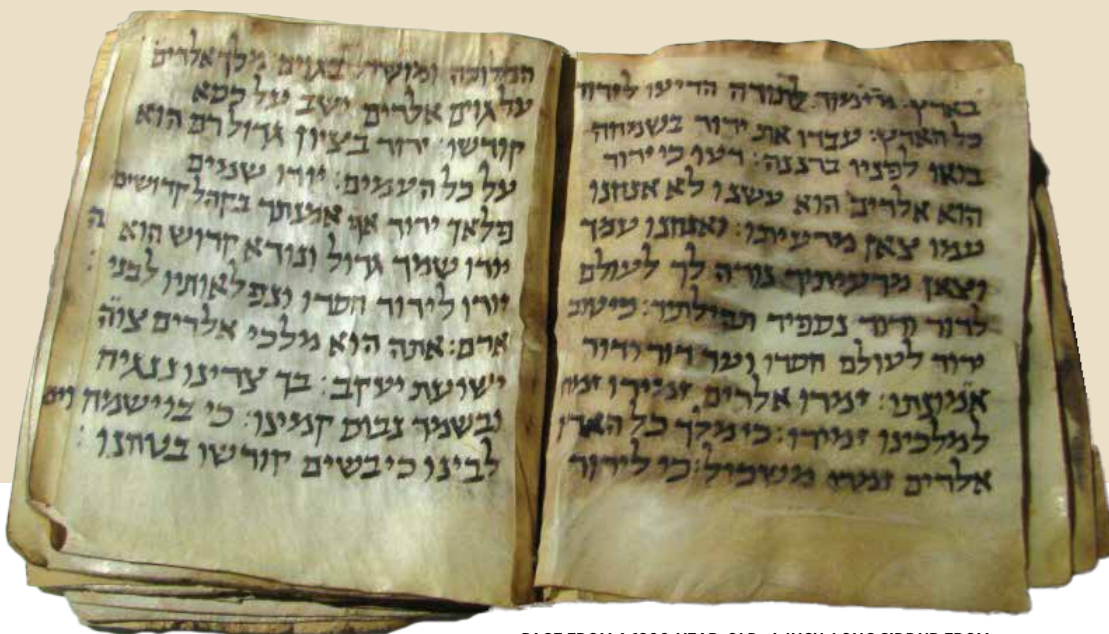 בארץ: מזמור לתודה הריעו לידוד
כל הארץ: עבדו את ידוד בשמחה
בואו לפניו ברננה: דעו כי ידוד
הוא אלדים הוא עשנו לא אנחנו
עמו צאן מרעיתו: ואנחנו עמך
וצאן מרעיתיך נודה לך לעולם
לדור ודור נספיר תהילתך: כי טוב
ידוד לעולם חסדו ועד דור ודור
אמונתו: זמרו אלדים זמירו
למלכינו זמירו: כי מלך כל הארץ
אלדים זמרו משכיל: כי לידוד
המלוכה ומושל בגוים מלך אלדים
על גוים אלדים ישב על כסא
קודשו: ידוד בציון גדול רם הוא
על כל העמים: יודו שמים
פלאך ידוד אף אמנתך בקהל קדושים
יודו שמך גדול ונורא קדוש הוא
יודו לידוד חסדו ונפלאותיו לבני
אדם: אתה הוא מלכי אלדים צוה
ישועת יעקב: בך צרינו ננגיח
ובשמך נבוס קמינו: כי בו ישמיח
לבינו כי בשים קודשו בטחנו: